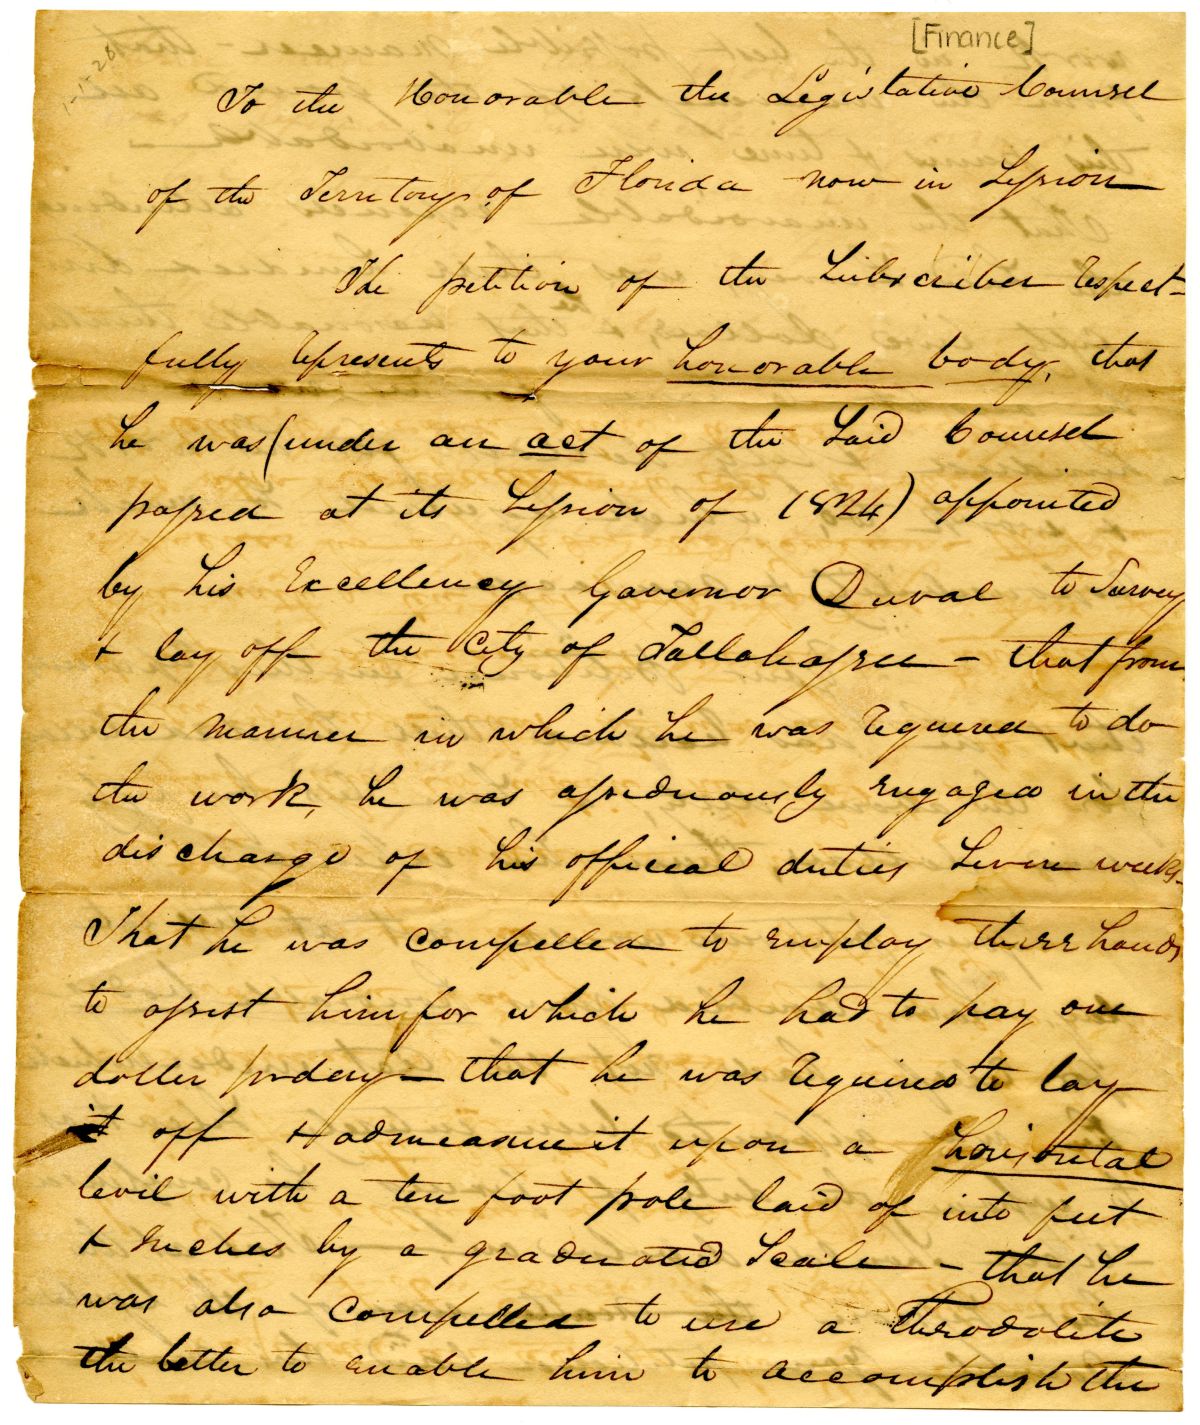 [Finance]
1-1-26
To the Honorable the Legislative Counsel
of the Territory of Florida now in Session
The petition of the Subscriber respect-
fully represents to your honorable body, that
he was (under an act of the Said Counsel
passed at its Session of 1824) appointed
by his Excellency Governor Duval to Survey
& lay off the City of Tallahassee - that from
the manner in which he was required to do
the work, he was assiduously engaged in the
discharge of his official duties Seven weeks-
That he was compelled to employ three hands
to assist him for which he had to pay one
doller pr day - that he was required to lay
it off & admeasure it upon a horisontal
levil with a ten foot pole laid of into feet
& inches by a graduated Scale - that he
was also compelled to use a Theodolite
the better to enable him to accomplish the